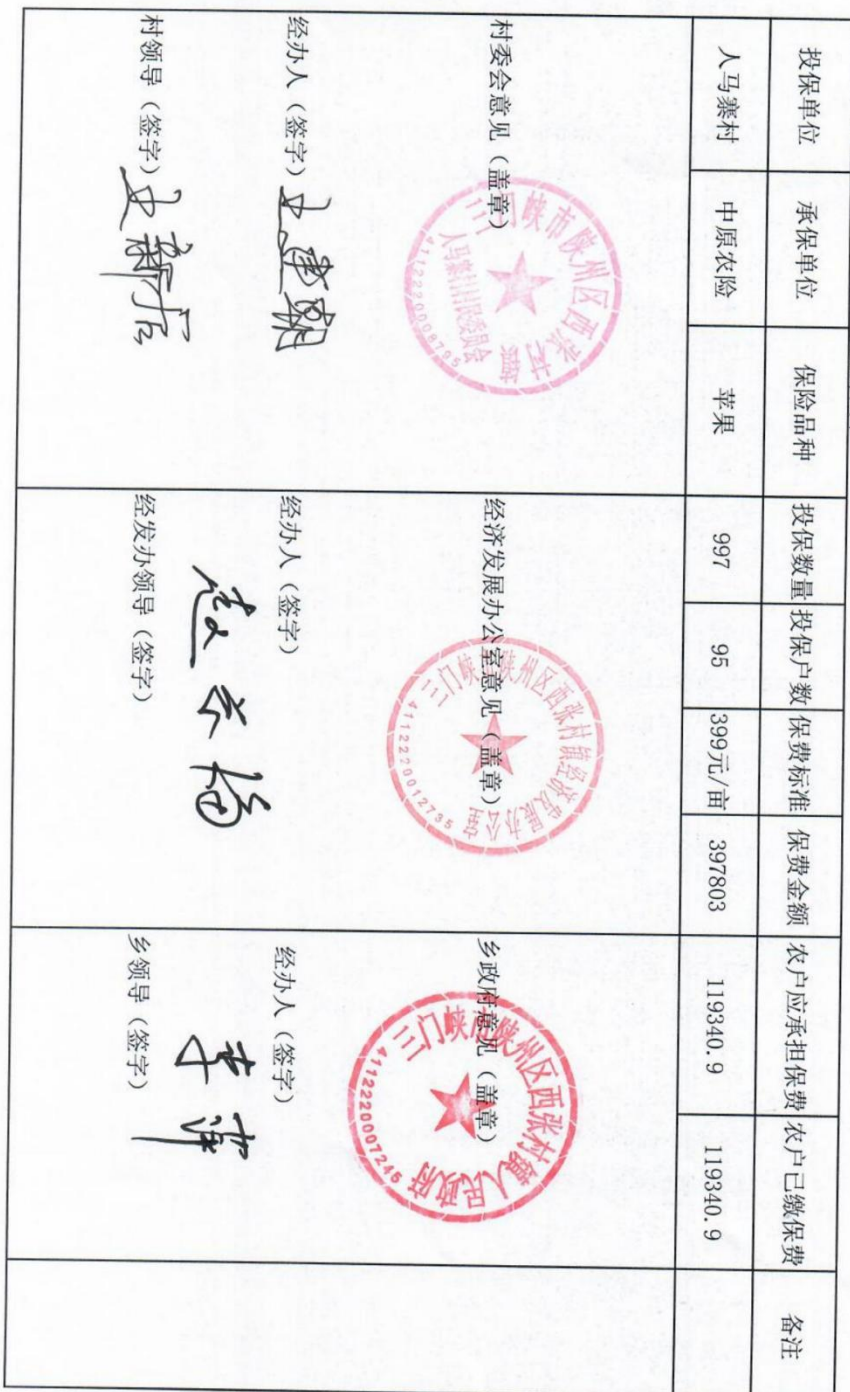 投保单位 承保单位 保险品种 投保数量 投保户数 保费标准 保费金额 农户应承担保费 农户已缴保费 备注
人马寨村 中原农险 苹果 997 95 399元/亩 397803 119340.9 119340.9
村委会意见（盖章）
三门峡市陕州区西张村镇
人马寨村村民委员会
4112220008795
经办人（签字）
村领导（签字）
经济发展办公室意见（盖章）
三门峡市陕州区西张村镇经济发展办公室
4112220012735
经办人（签字）
经发办领导（签字）
乡政府意见（盖章）
三门峡市陕州区西张村镇人民政府
4112220007245
经办人（签字）
乡领导（签字）